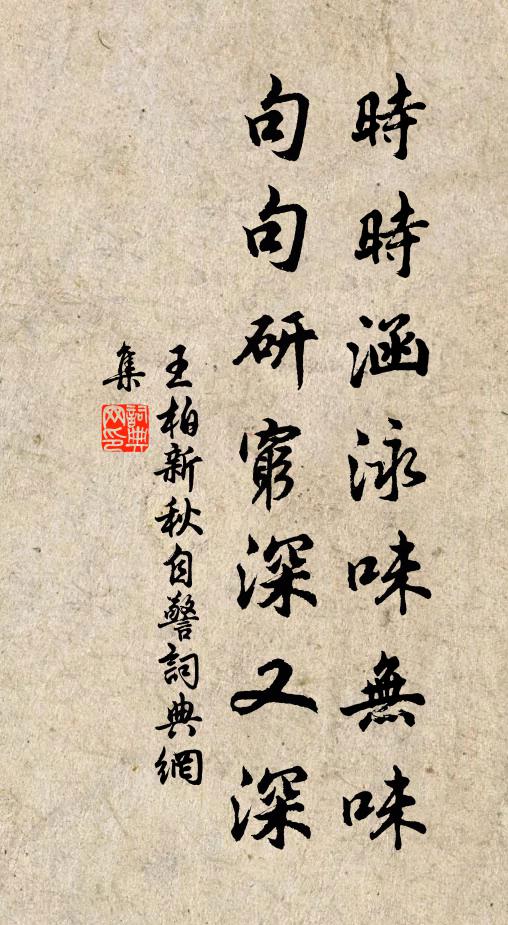 時時涵泳味無味
句句研窮深又深
王柏新秋自警詞典網
集
詞典
网印